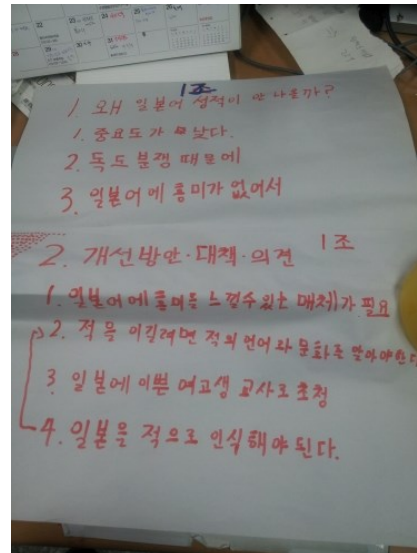 1조
1. 왜 일본어 성적이 안 나올까?
1. 중요도가 낮다.
2. 독도 분쟁 때문에
3. 일본어에 흥미가 없어서
1조
2. 개선방안·대책·의견
1. 일본어에 흥미를 느낄수있는 매체가 필요
2. 적을 이길려면 적의 언어와 문화를 알아야한다
3 일본에 이쁜 여고생 교사로 초청
4. 일본을 적으로 인식해야 된다.